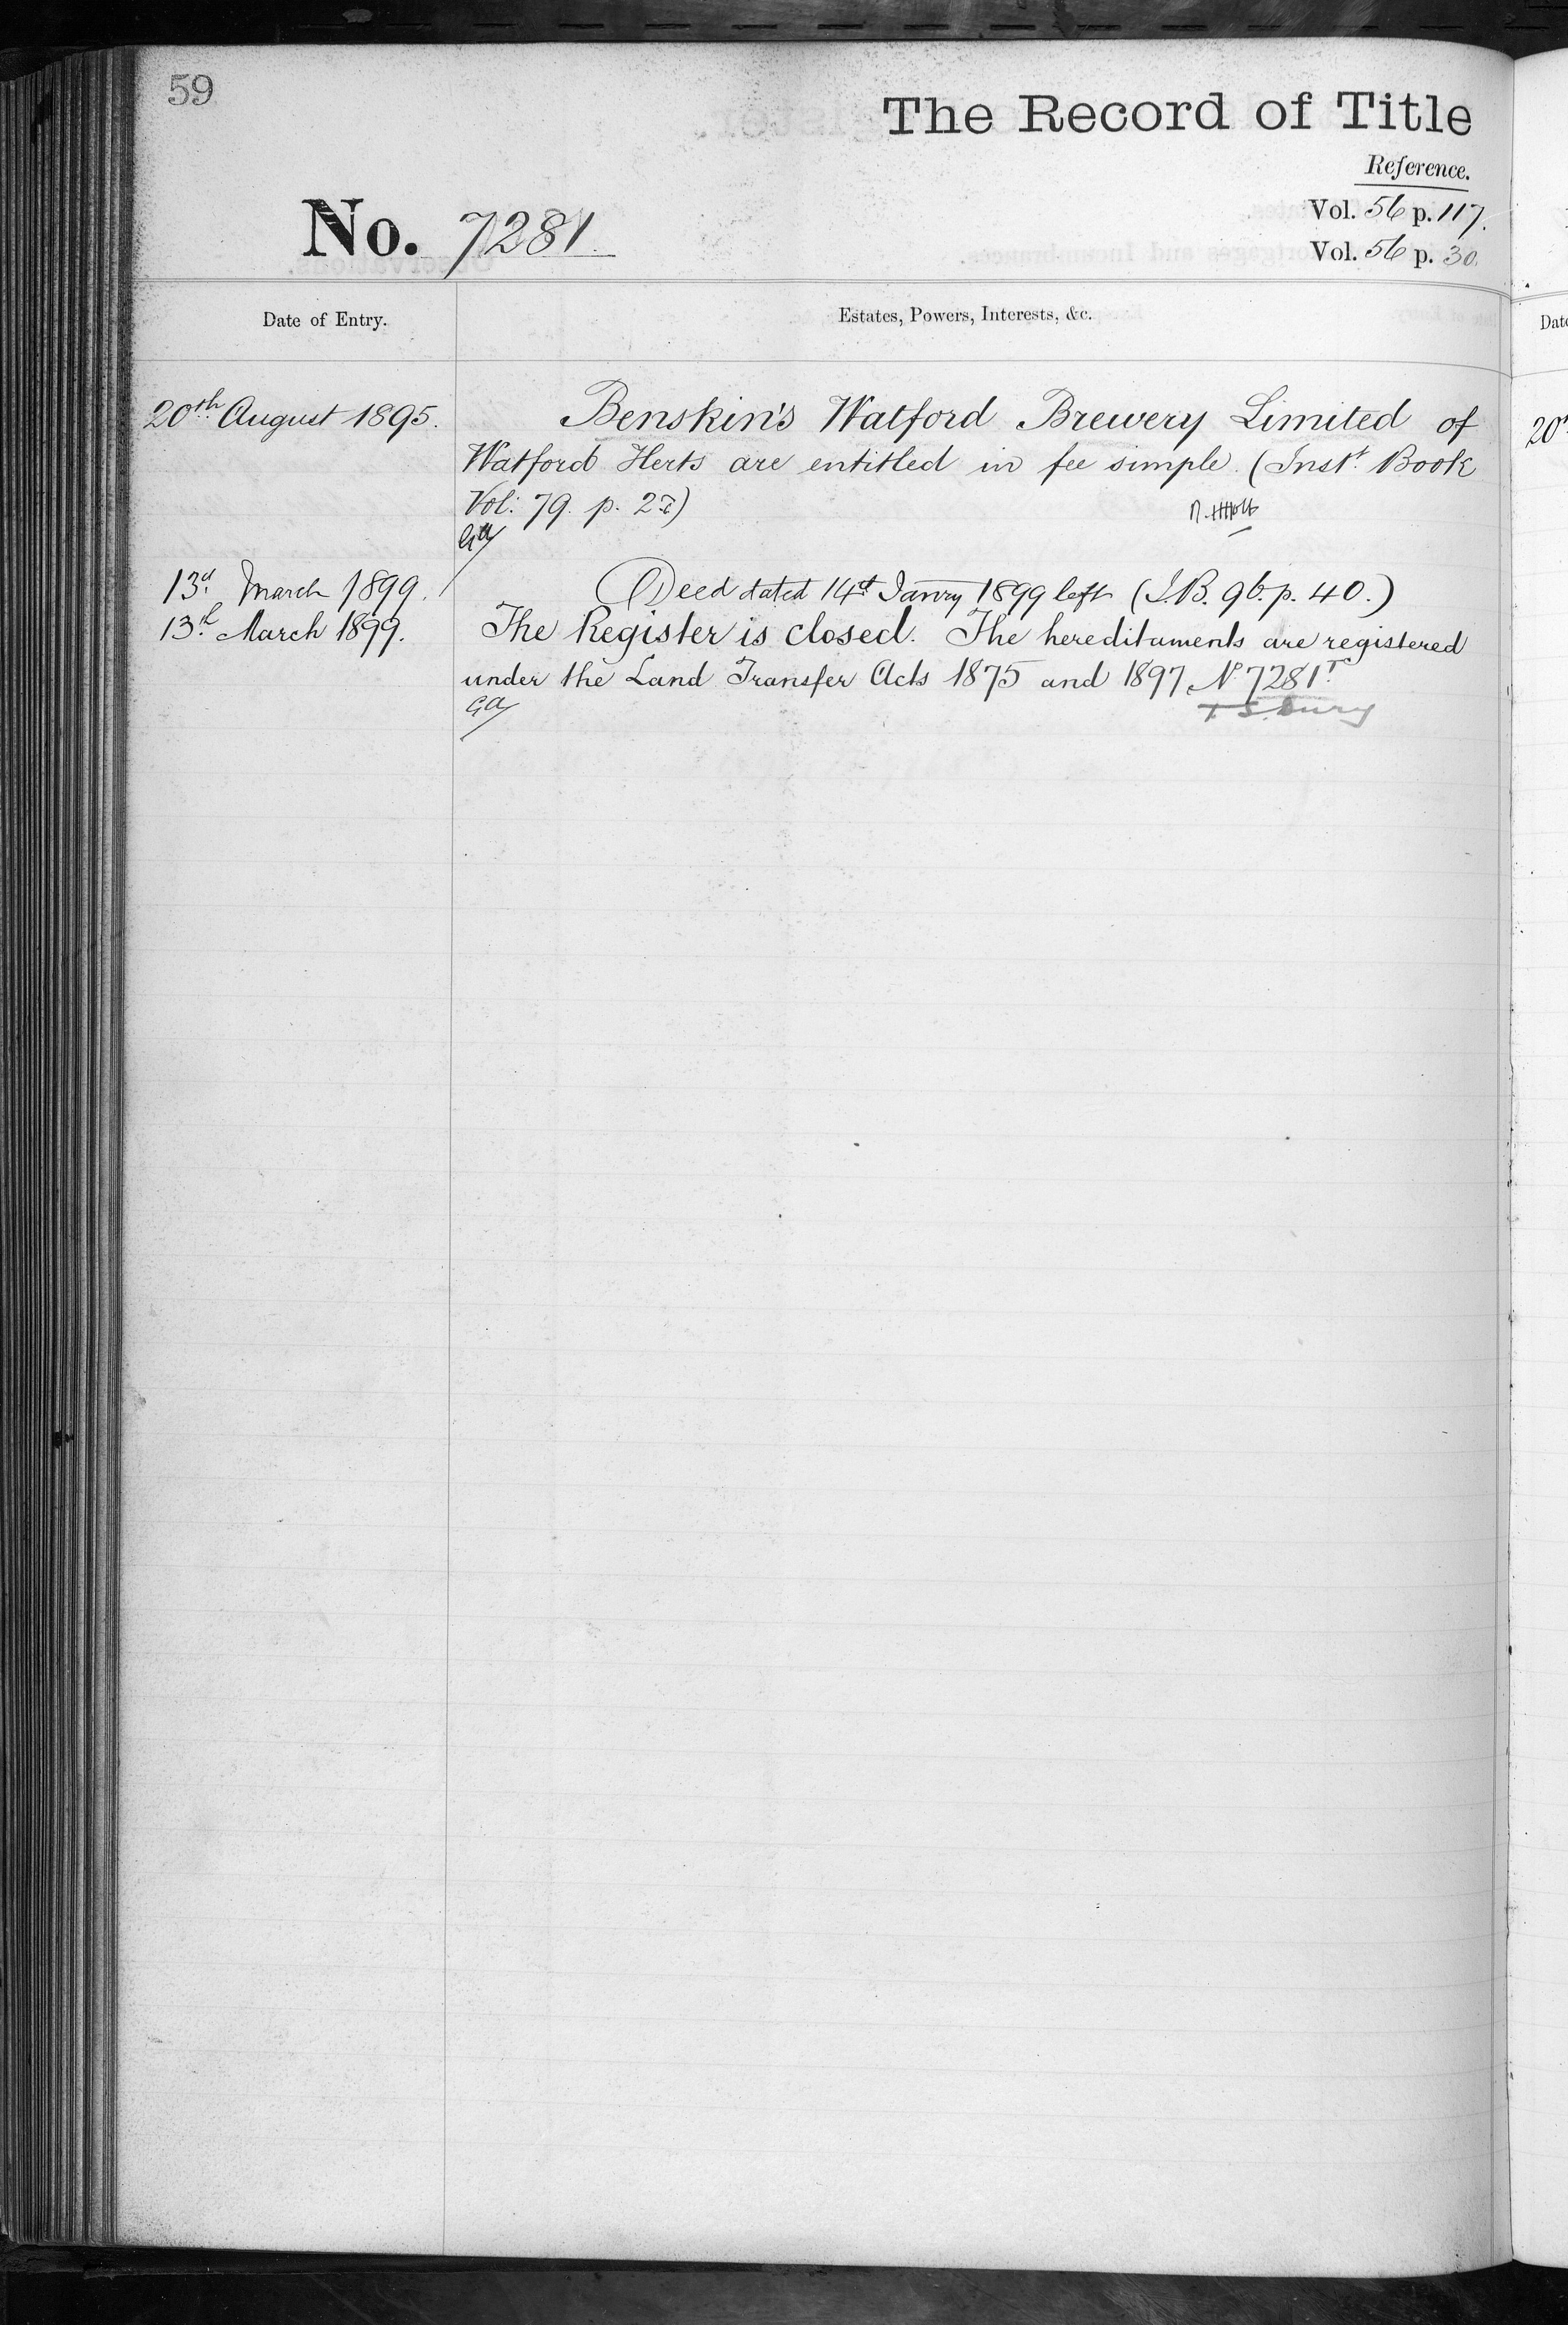 59
The Record of Title
Reference.
Vol. 56 p. 117.
No. 7281.
Vol. 56 p. 30.
Date of Entry.
Estates, Powers, Interests, &c.
20th August 1895.
Benskin's Watford Brewery Limited of
Watford Herts are entitled in fee simple (Inst. Book
Vol: 79. p. 27)
13d March 1899.
Deed dated 14th Janry 1899 left (I.B. 96. p. 40.)
13th March 1899.
The Register is closed. The hereditaments are registered
under the Land Transfer Acts 1875 and 1897 No 7281T
GA
Date
20